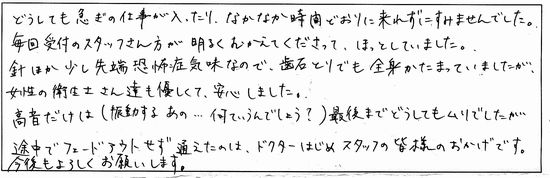 どうしても急ぎの仕事が入ったり、なかなか時間どおりに来れずにすみませんでした。
毎回受付のスタッフさん方が明るくむかえてくださって、ほっとしていました。
針ほか少し先端恐怖症気味なので、歯石とりでも全身かたまっていましたが、
女性の衛生士さん達も優しくて、安心しました。
高音だけは(振動するあの…何ていうんでしょう?)最後までどうしてもムリでしたが
途中でフェードアウトせず通えたのは、ドクターはじめスタッフの皆様のおかげです。
今後もよろしくお願いします。